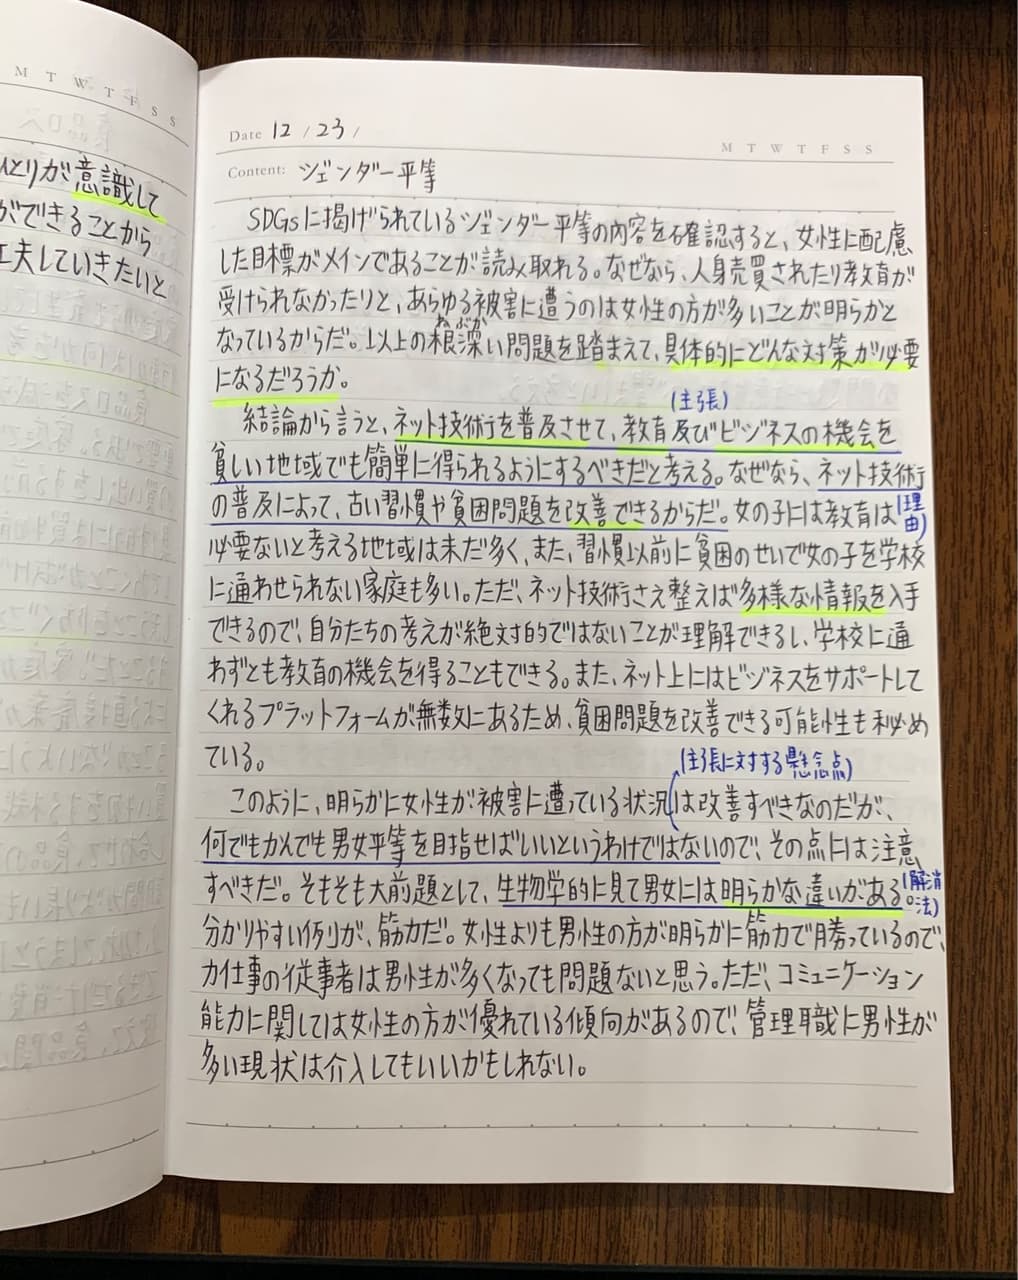 M T W T F S S
ひとりが意識して
ができることから
工夫していきたいと
Date 12 / 23 /
M T W T F S S
Content: ジェンダー平等
SDGsに掲げられているジェンダー平等の内容を確認すると、女性に配慮
した目標がメインであることが読み取れる。なぜなら、人身売買されたり教育が
受けられなかったりと、あらゆる被害に遭うのは女性の方が多いことが明らかと
ねぶか
なっているからだ。以上の根深い問題を踏まえて、具体的にどんな対策が必要
になるだろうか。
(主張)
結論から言うと、ネット技術を普及させて、教育及びビジネスの機会を
貧しい地域でも簡単に得られるようにするべきだと考える。なぜなら、ネット技術
の普及によって、古い習慣や貧困問題を改善できるからだ。女の子には教育は
(理由)
必要ないと考える地域は未だ多く、また、習慣以前に貧困のせいで女の子を学校
に通わせられない家庭も多い。ただ、ネット技術さえ整えば多様な情報を入手
できるので、自分たちの考えが絶対的ではないことが理解できるし、学校に通
わずとも教育の機会を得ることもできる。また、ネット上にはビジネスをサポートして
くれるプラットフォームが無数にあるため、貧困問題を改善できる可能性も秘め
ている。
(主張に対する懸念点)
このように、明らかに女性が被害に遭っている状況は改善すべきなのだが、
何でもかんでも男女平等を目指せばいいというわけではないので、その点には注意
すべきだ。そもそも大前題として、生物学的に見て男女には明らかな違いがある。
(解消法)
分かりやすい例が、筋力だ。女性よりも男性の方が明らかに筋力で勝っているので、
力仕事の従事者は男性が多くなっても問題ないと思う。ただ、コミュニケーション
能力に関しては女性の方が優れている傾向があるので、管理職に男性が
多い現状は介入してもいいかもしれない。